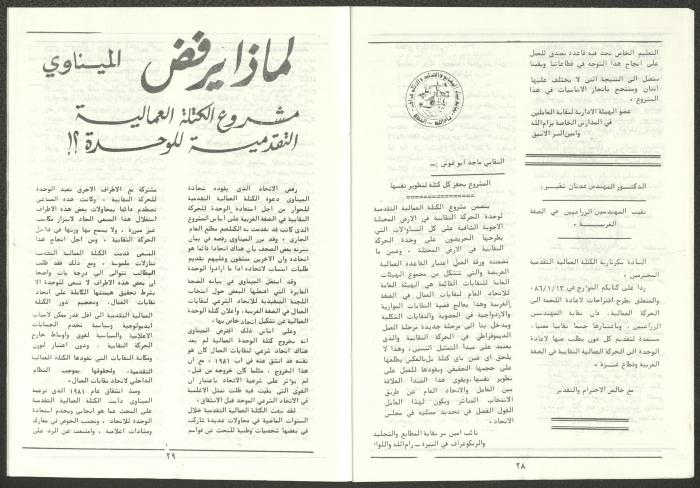 التعليم الخاص نجد فيه قاعدة نصدق للعمل
على انجاح هذا التوجه في قطاعاتنا وبقينا
سنصل الى النتيجة التي لا يختلف عليها
اثنان وسننجح بانجاز الاساسيات في هذا
المشروع .
عضو الهيئة الادارية لنقابة العاملين
في المدارس الخاصة برام الله
وامين السر الاسبق
الدكتور المهندس عدنان شقير :
نقيب المهندسين الزراعيين في الضفة
الغربية
السادة سكرتارية الكتلة العمالية التقدمية
المحترمين .
ردا على كتابكم المؤرخ في ٨٦/١/١٢
والمتعلق بطرح اقتراحات لاعادة اللحمة الى
الحركة العمالية، فان نقابة المهندسين
الزراعيين ، وباعتبارها جسما نقابيا معنيا،
مستعدة لتقديم كل عون يطلب منها لاعادة
الوحدة الى الحركة العمالية النقابية في الضفة
الغربية وقطاع غزة .
مع خالص الاحترام والتقدير
النقابي ماجد ابو غوش :ـ
المشروع يحفز كل كتلة لتطوير نفسها
يتضمن مشروع الكتلة العمالية التقدمية
لوحدة الحركة النقابية في الارض المحتلة
الاجوبة الشافية على كل التساؤلات التي
يطرحها الحريصون على وحدة الحركة
النقابية في الارض المحتلة . وضمن ما
تضمنته ورقة العمل اعتبار القاعدة العمالية
العريضة والتي تتشكل من مجموع الهيئات
العامة للنقابات القائمة هي الهيئة العامة
للاتحاد العام لنقابات العمال في الضفة
الغربية وهذا يعالج قضية النقابات الموازية
والازدواجية في العضوية والنقابات الشكلية
ويدخل بنا الى مرحلة جديدة مرحلة العمل
الديموقراطي في الحركة النقابية والذي
يعتمد على مبدأ التمثيل النسبي، وهذا لا
يلحق اي غبن بأي كتلة بل بالعكس يطلعها
على حجمها الحقيقي ويقودها للعمل على
تطوير نفسها، ويقوي هذا المبدأ العلاقة
بين العامل والاتحاد العام عن طريق
الانتخاب المباشر ويكون لهذا العامل
القول الفصل في تحديد ممثليه في مجلس
الاتحاد .
نائب امين سر نقابة المطابع والتجليد
والزنكوغراف في البيرة ــ رام الله واللواء
٢٨
لماذا يرفض الميناوي
مشروع الكتلة العمالية
التقدمية للوحدة ؟!
رفض الاتحاد الذي يقوده شحادة
الميناوي دعوة الكتلة العمالية التقدمية
للحوار من اجل استعادة الوحدة للحركة
النقابية في الضفة الغربية على اساس المشروع
الذي كانت قد تقدمت به كتلتهم مطلع العام
الجاري . وقد برر الميناوي رفضه في بيان
نشرته بعض الصحف بأن هناك اتحادا قائما هو
اتحاده وان الاخرين منشقون وعليهم تقديم
طلبات انتساب لاتحاده اذا ما ارادوا الوحدة .
وقد استغل الميناوي في بيانه الضجة
العابرة التي افتعلها البعض حول انتخاب
اللجنة التنفيذية للاتحاد الشرعي لنقابات
العمال في الضفة الغربية، واعلان كتلة الوحدة
العمالية عن تشكيل اتحاد خاص بها .
وعلى اساس ذلك افترض الميناوي
انه بخروج كتلة الوحدة العمالية لم يعد
هناك اتحاد شرعي لنقابات العمال كان هو
نفسه قد انشق عنه في اب ١٩٨١ ، مع ان
هذا الخروج ، مثلما كان خروجه من قبل،
لم يؤثر على شرعية الاتحاد باعتبار ان
القوى التي بقيت فيه ظلت تمثل الاغلبية
في الاتحاد الشرعي الموحد قبل الانشقاق .
لقد سعت الكتلة العمالية التقدمية خلال
السنوات الماضية في محاولات عديدة شاركت
في بعضها شخصيات وطنية للبحث عن قواسم
مشتركة مع الاطراف الاخرى تعيد الوحدة
للحركة النقابية . وكانت هذه المساعي
تصطدم دائما بمحاولات بعض هذه الاطراف
استغلال هذا السعي الجاد لابتزاز مكاسب
غير مبررة ، ولا يسمح بها وزنها في داخل
الحركة النقابية . ومن اجل انجاح هذا
السعي قدمت الكتلة العمالية التقدمية
تنازلات ملموسة . ومع ذلك فقد ظلت
المطالب تتوالى الى درجة بات واضحا
ان بعض هذه الاطراف لا تسعى للوحدة الا
بشرط تحقيق هيمنتها الكاملة على اتحاد
نقابات العمال، وتحجيم دور الكتلة
العمالية التقدمية الى اقل قدر ممكن لاسباب
ايديولوجية وسياسية تخدم الحسابات
الاعلامية والسياسية لقوى واوساط خارج
الحركة النقابية ، ودون اعتبار لوزن
ومكانة النقابات التي تقودها الكتلة العمالية
التقدمية، ولحقوقها بموجب النظام
الداخلي لاتحاد نقابات العمال .
ومنذ انشقاق عام ١٩٨١ الذي تزعمه
الميناوي دأبت الكتلة العمالية التقدمية
على البحث عما هو ايجابي ويخدم استعادة
الوحدة للاتحاد ، وتجنب الخوض في معارك
ومشادات اعلامية ، وامتنعت عن الرد على
٢٩